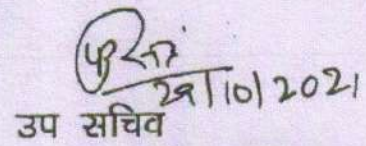 29/10/2021
उप सचिव